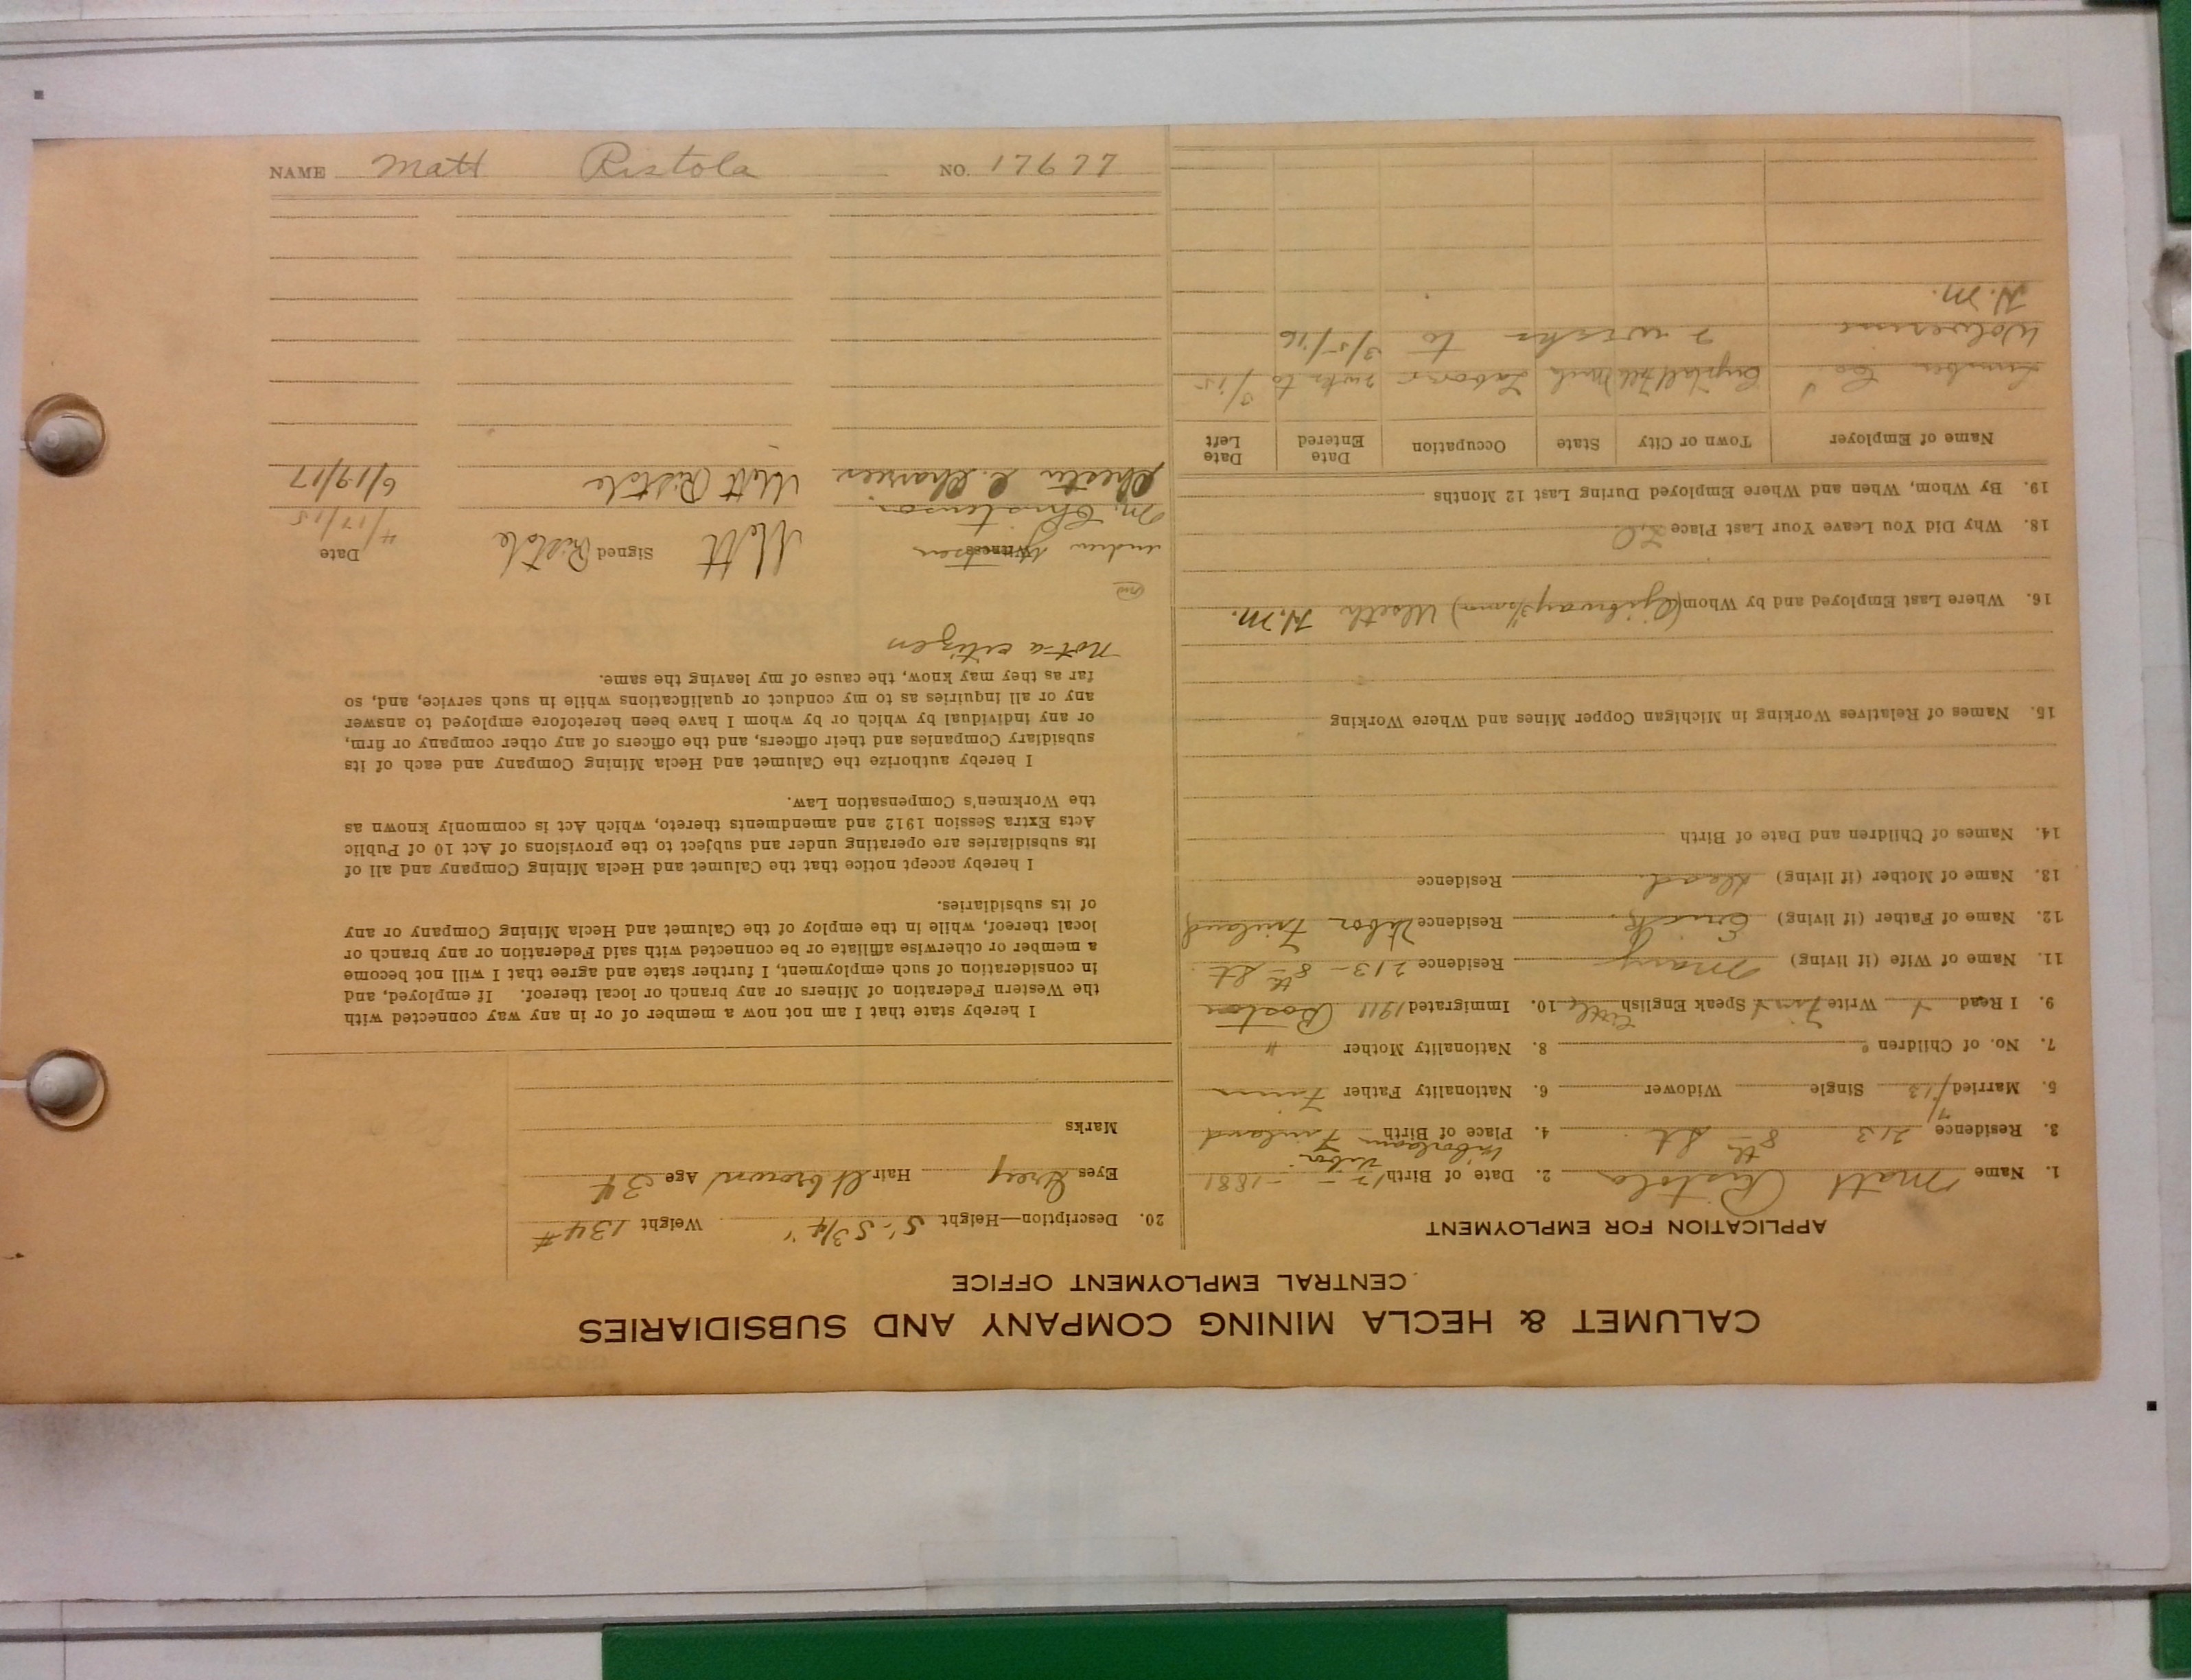 CALUMET & HECLA MINING COMPANY AND SUBSIDIARIES
CENTRAL EMPLOYMENT OFFICE
APPLICATION FOR EMPLOYMENT
1. Name Matt Ristola 2. Date of Birth 12 - - 1881
3. Residence 213 8th St 4. Place of Birth Finland
5. Married /13 Single Widower 6. Nationality Father Finn
7. No. of Children 8. Nationality Mother "
9. I Read Write Finn Speak English little 10. Immigrated 1911 Boston
11. Name of Wife (if living) Mary Residence 213-8th St
12. Name of Father (if living) Erick Residence Finland
13. Name of Mother (if living) dead. Residence
14. Names of Children and Date of Birth
15. Names of Relatives Working in Michigan Copper Mines and Where Working
16. Where Last Employed and by Whom H.M.
18. Why Did You Leave Your Last Place
19. By Whom, When and Where Employed During Last 12 Months
Name of Employer Town or City State Occupation Date Entered Date Left
Lumber Co. Crystal Mich Labor 2 wks to /15
Wolverine 2 wks to 3/5/16
H.M.
20. Description—Height 5'-5 3/4" Weight 134 #
Eyes Grey Hair lt brown Age 34
Marks
I hereby state that I am not now a member of or in any way connected with
the Western Federation of Miners or any branch or local thereof. If employed, and
in consideration of such employment, I further state and agree that I will not become
a member or otherwise affiliate or be connected with said Federation or any branch or
local thereof, while in the employ of the Calumet and Hecla Mining Company or any
of its subsidiaries.
I hereby accept notice that the Calumet and Hecla Mining Company and all of
its subsidiaries are operating under and subject to the provisions of Act 10 of Public
Acts Extra Session 1912 and amendments thereto, which Act is commonly known as
the Workmen's Compensation Law.
I hereby authorize the Calumet and Hecla Mining Company and each of its
subsidiary Companies and their officers, and the officers of any other company or firm,
or any individual by which or by whom I have been heretofore employed to answer
any or all inquiries as to my conduct or qualifications while in such service, and, so
far as they may know, the cause of my leaving the same.
not a citizen
Witness Signed Date
M. Christenson Matt Ristola 4/17/15
Chester C. Matt Ristola 6/19/17
NAME Matt Ristola NO. 17677